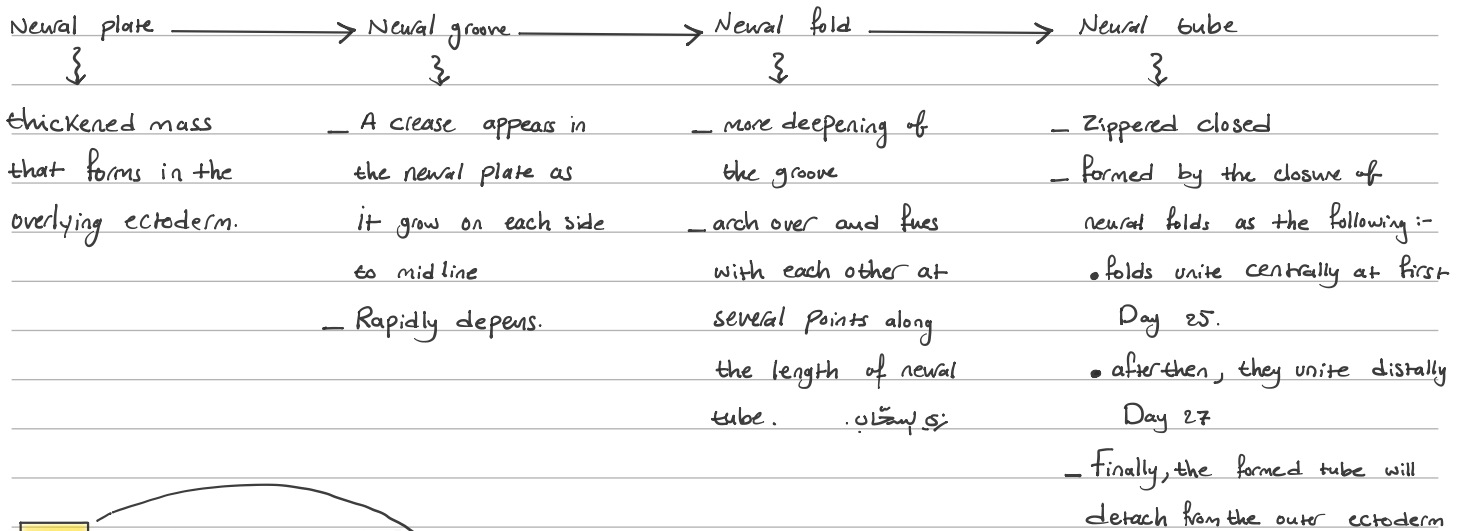 Neural plate → Neural groove → Neural fold → Neural tube
thickened mass
that forms in the
overlying ectoderm.
– A crease appears in
the neural plate as
it grow on each side
to midline
– Rapidly depens.
– more deepening of
the groove
– arch over and fues
with each other at
several points along
the length of neural
tube. زي السحّاب.
– Zippered closed
– formed by the closure of
neural folds as the following :-
• folds unite centrally at first
Day 25.
• afterthen, they unite distally
Day 27
– Finally, the formed tube will
detach from the outer ectoderm